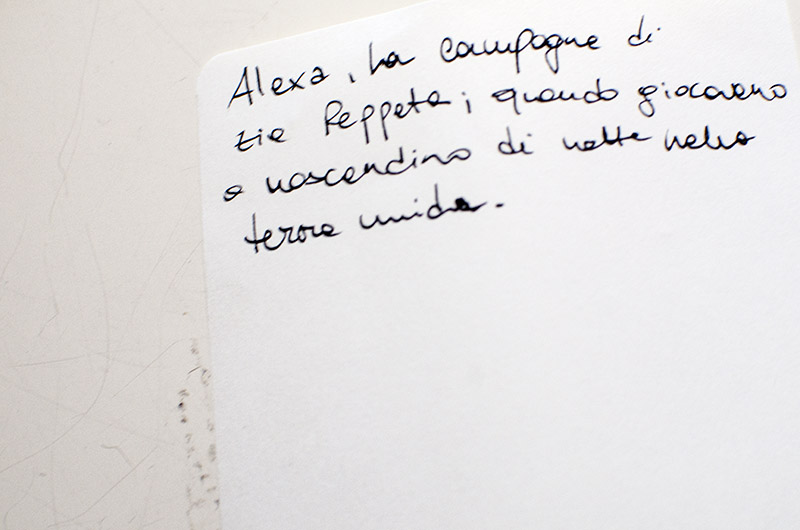 Alexa, la campagna di
zia Peppeta; quando giocavano
a nascondino di notte nella
terra umida.